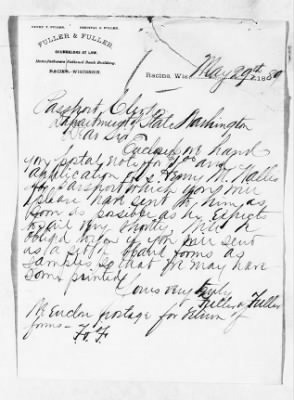 FULLER & FULLER
COUNSELORS AT LAW.
Manufacturers National Bank Building.
RACINE, WISCONSIN.
Racine, Wis. May 29th 1889
Passport Clerk
Department of State Washington
Dear Sir
Enclosed we hand
you postal note for $1.00 and
application of Henry M. Wallis
for passport which you will
please have sent to him as
soon as possible as he expects
to sail very shortly. Will be
oblig'd to you if you will send
us a set of board forms as
samples so that we may have
some printed
Yours very truly
Fuller & Fuller
We enclose postage for return of
forms—
F. & F.